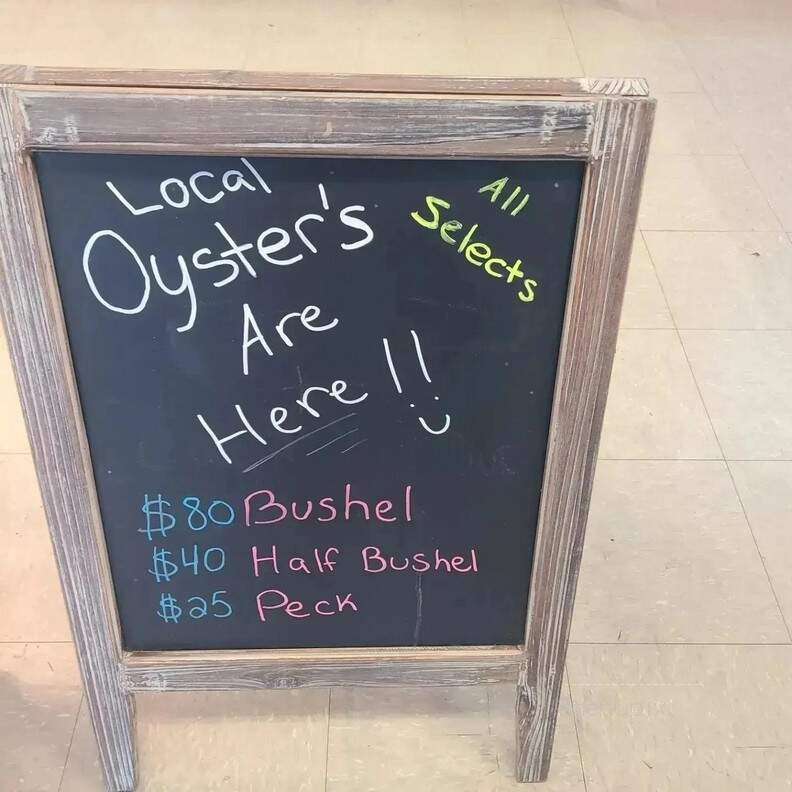 Local
Oyster's
Are
Here!!
All
Selects
$80 Bushel
$40 Half Bushel
$25 Peck